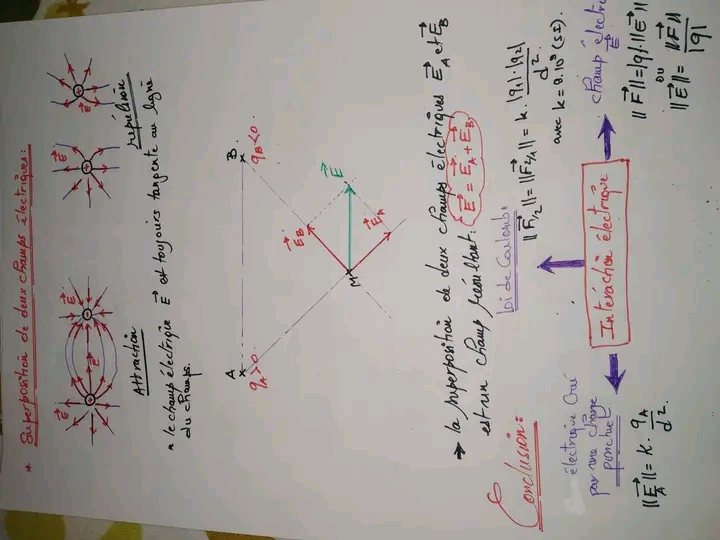 * Superposition de deux champs électriques:
E⃗
E⃗
E⃗
E⃗
E⃗
Attraction
répulsion
* le champ électrique E⃗ est toujours tangente au ligne
du champs.
A
q_A>0
B
q_B<0
E⃗_B
E⃗
E⃗_A
M
→ la superposition de deux champs électriques E⃗_A et E⃗_B
est un champ résultant: E⃗ = E⃗_A + E⃗_B
Conclusion:
Loi de Coulomb:
||F⃗_1/2|| = ||F⃗_2/1|| = k. |q_1|.|q_2| / d²
avec k = 9.10⁹ (SI).
Intéraction électrique
électrique Creé
par une charge
ponctuel
||E⃗_A|| = k. q_A / d².
champ électri
E⃗
||F⃗|| = |q|.||E⃗||
ou
||E⃗|| = ||F⃗|| / |q|